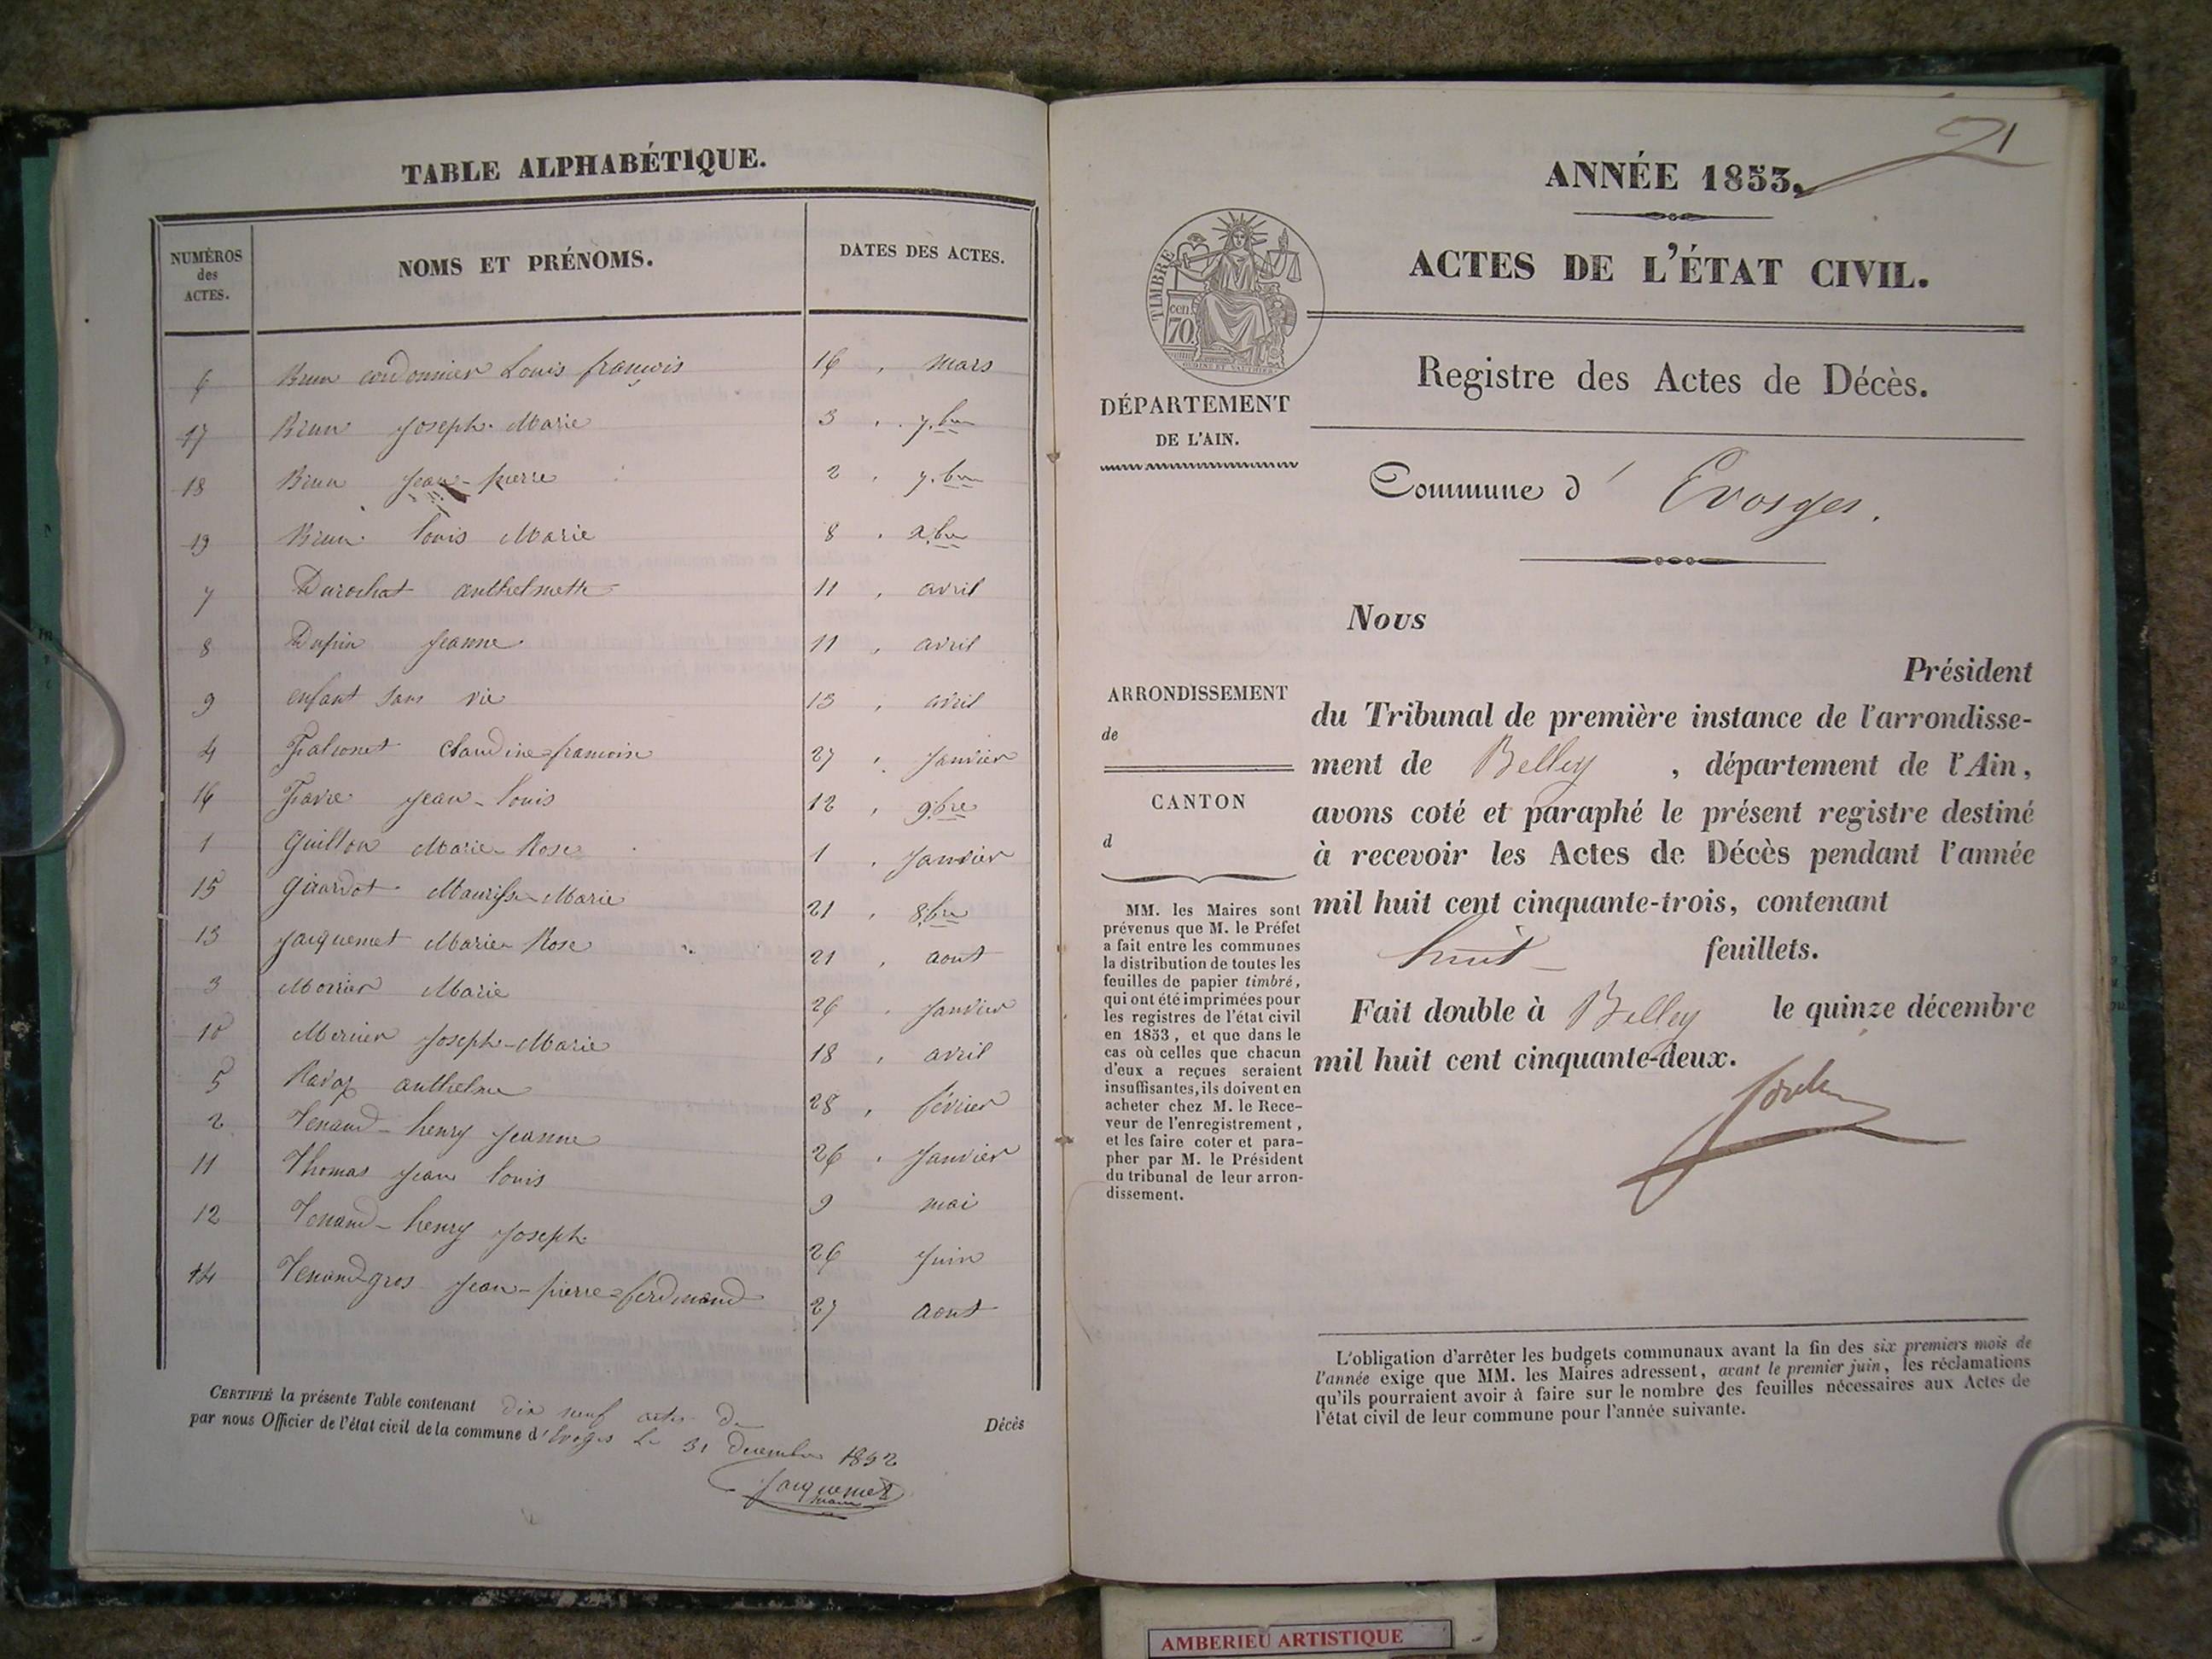 TABLE ALPHABÉTIQUE.
NUMÉROS des ACTES. NOMS ET PRÉNOMS. DATES DES ACTES.
6 Brun cordonnier Louis françois 16 , mars
17 Brun Joseph Marie 3 , 7.bre
18 Brun Jean-pierre 2 , 7.bre
19 Brun louis Marie 8 ,
7 Durochat anthelmette 11 , avril
8 Dupin Jeanne 11 , avril
9 enfant sans vie 13 , avril
4 Falconet Claudine=francoise 27 , Janvier
16 Favre jean-louis 12 , 9.bre
1 Guillon Marie Rose 1 , Janvier
15 Girardot Marie 21 , 8.bre
13 Jacquemet Marie Rose 21 , aout
3 Marie 26 , Janvier
10 Joseph-Marie 18 , avril
5 anthelme 28 , février
2 Tenand-henry Jeanne 26 , Janvier
11 Thomas Jean louis 9 mai
12 Tenand-henry Joseph 26 Juin
14 Tenand gros Jean-pierre=ferdinand 27 aout
CERTIFIÉ la présente Table contenant dix neuf actes de Décès
par nous Officier de l'état civil de la commune d' Evoges Le 31 Decembre 1852
Jacquemet
maire
21
ANNÉE 1853.
ACTES DE L'ÉTAT CIVIL.
TIMBRE
cen.
70.
Registre des Actes de Décès.
DÉPARTEMENT
DE L'AIN.
Commune d' Evosges.
Nous
Président
du Tribunal de première instance de l'arrondisse-
ment de Belley , département de l'Ain,
avons coté et paraphé le présent registre destiné
à recevoir les Actes de Décès pendant l'année
mil huit cent cinquante-trois, contenant
huit feuillets.
Fait double à Belley le quinze décembre
mil huit cent cinquante-deux.
ARRONDISSEMENT
de
CANTON
d
MM. les Maires sont
prévenus que M. le Préfet
a fait entre les communes
la distribution de toutes les
feuilles de papier timbré,
qui ont été imprimées pour
les registres de l'état civil
en 1853, et que dans le
cas où celles que chacun
d'eux a reçues seraient
insuffisantes, ils doivent en
acheter chez M. le Rece-
veur de l'enregistrement,
et les faire coter et para-
pher par M. le Président
du tribunal de leur arron-
dissement.
L'obligation d'arrêter les budgets communaux avant la fin des six premiers mois de
l'année exige que MM. les Maires adressent, avant le premier juin, les réclamations
qu'ils pourraient avoir à faire sur le nombre des feuilles nécessaires aux Actes de
l'état civil de leur commune pour l'année suivante.
AMBERIEU ARTISTIQUE